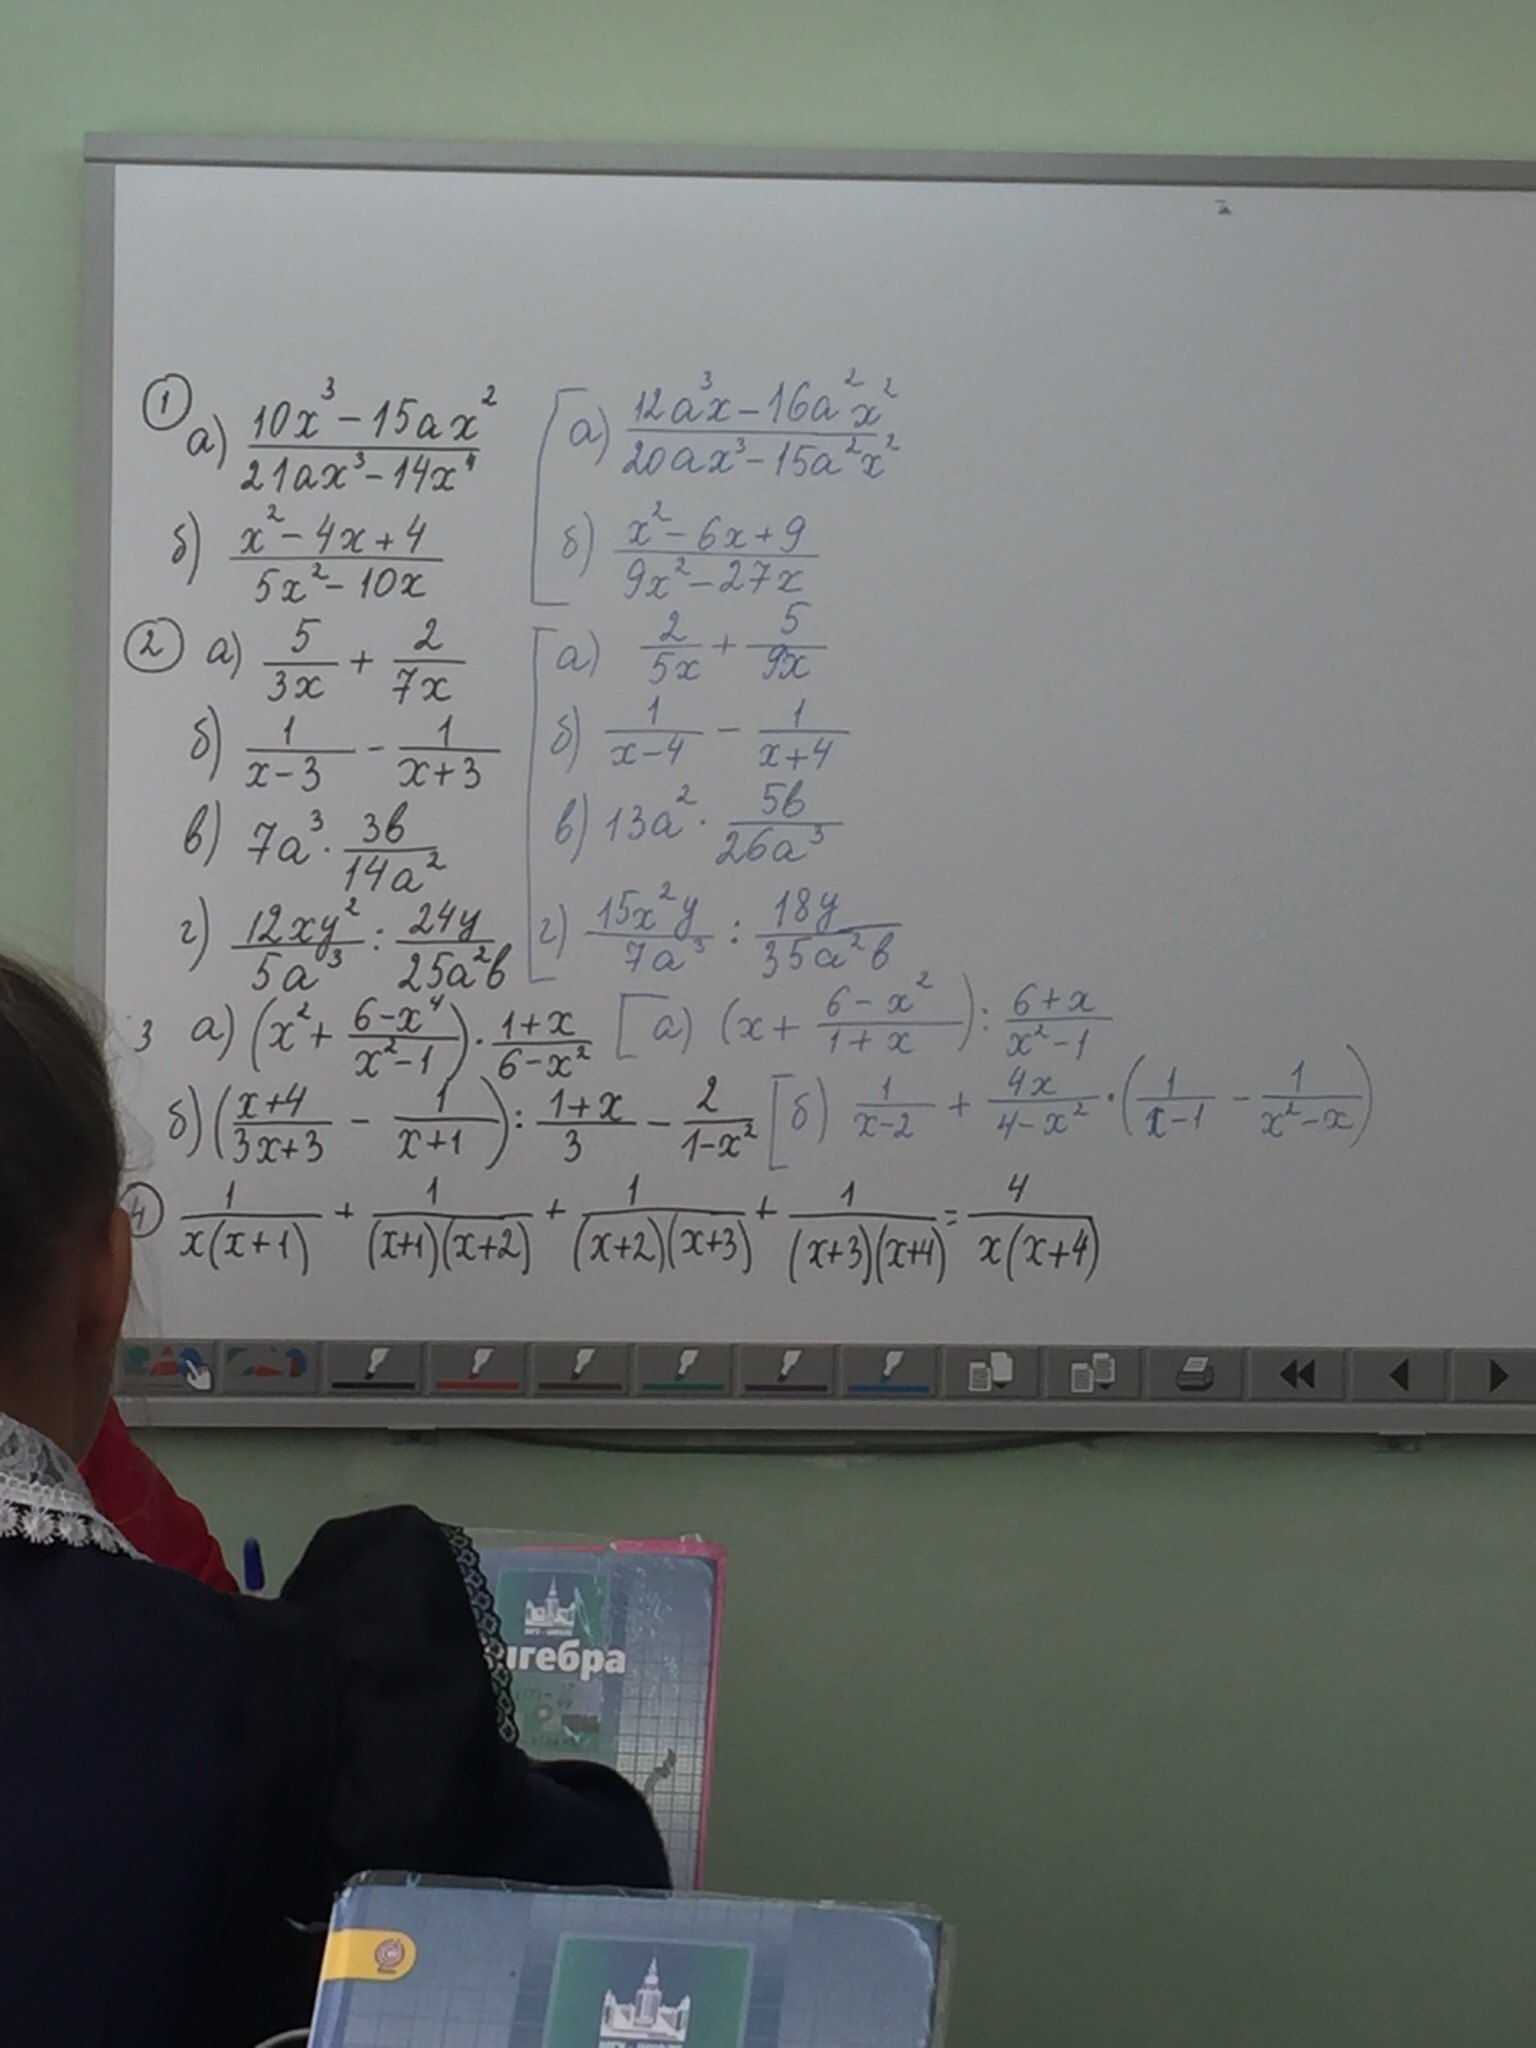 ① а) (10x³ − 15ax²)/(21ax³ − 14x⁴) [а) (12a³x − 16a²x²)/(20ax³ − 15a²x²)
б) (x² − 4x + 4)/(5x² − 10x) б) (x² − 6x + 9)/(9x² − 27x)
② а) 5/(3x) + 2/(7x) [а) 2/(5x) + 5/(9x)
б) 1/(x − 3) − 1/(x + 3) б) 1/(x − 4) − 1/(x + 4)
в) 7a³ · 3b/(14a²) в) 13a² · 5b/(26a³)
г) 12xy²/(5a³) : 24y/(25a²b) г) 15x²y/(7a³) : 18y/(35a²b)
3 а) (x² + (6 − x⁴)/(x² − 1)) · (1 + x)/(6 − x²) [а) (x + (6 − x²)/(1 + x)) : (6 + x)/(x² − 1)
б) ((x + 4)/(3x + 3) − 1/(x + 1)) : (1 + x)/3 − 2/(1 − x²) [б) 1/(x − 2) + 4x/(4 − x²) · (1/(x − 1) − 1/(x² − x))
④ 1/(x(x + 1)) + 1/((x + 1)(x + 2)) + 1/((x + 2)(x + 3)) + 1/((x + 3)(x + 4)) = 4/(x(x + 4))